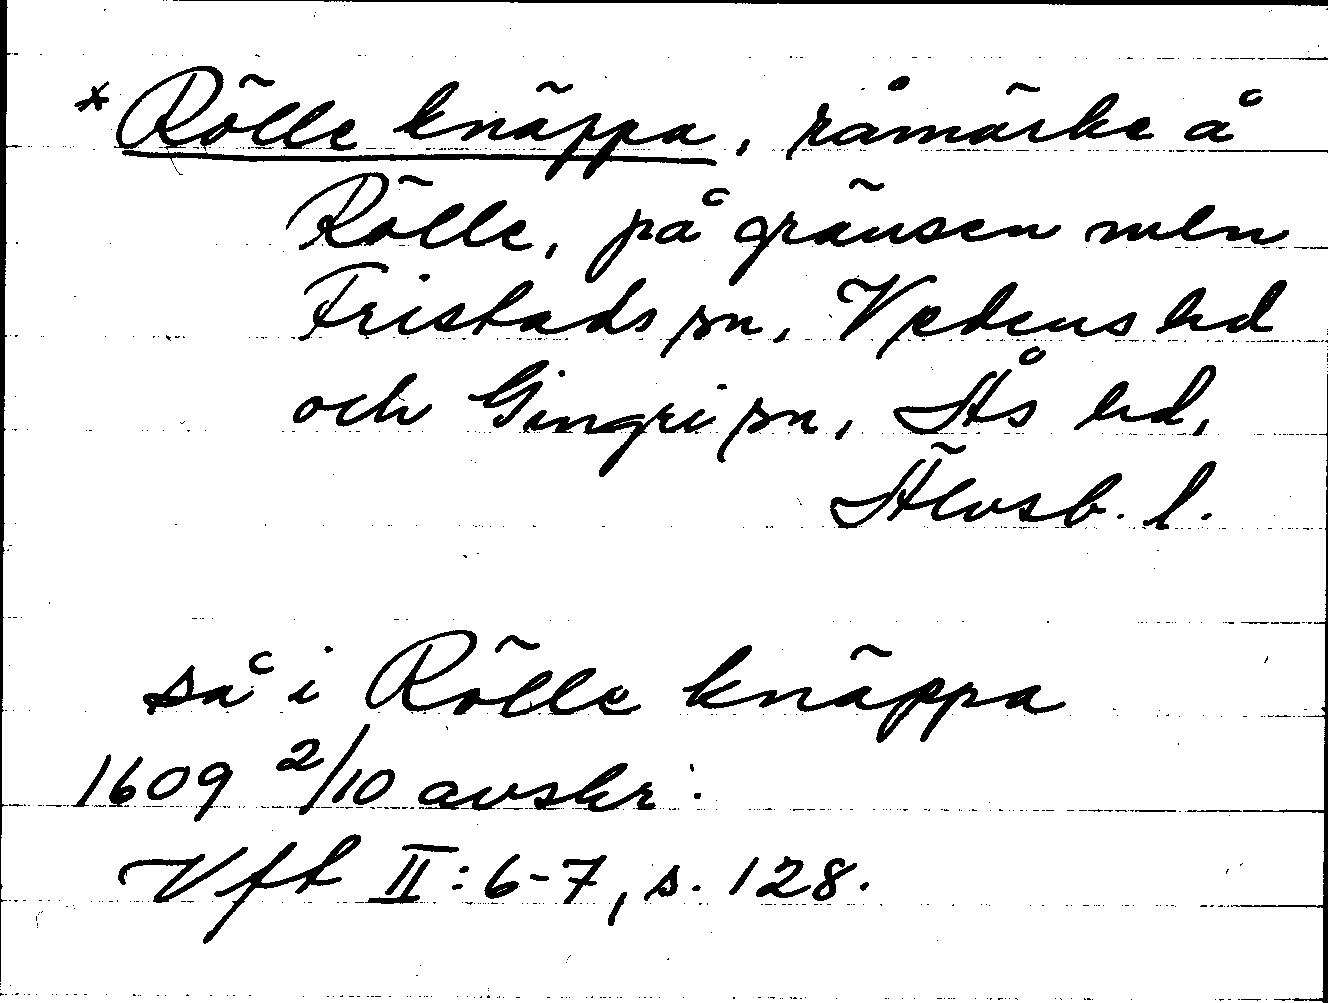 *Rölle knäppa, råmärke å
Rölle, på gränsen mln
Fristads sn, Vedens hd
och Gingri sn, Ås hd,
Älvsb. l.
så i Rölle knäppa
1609 2/10 avskr.
Vft II: 6-7, s. 128.